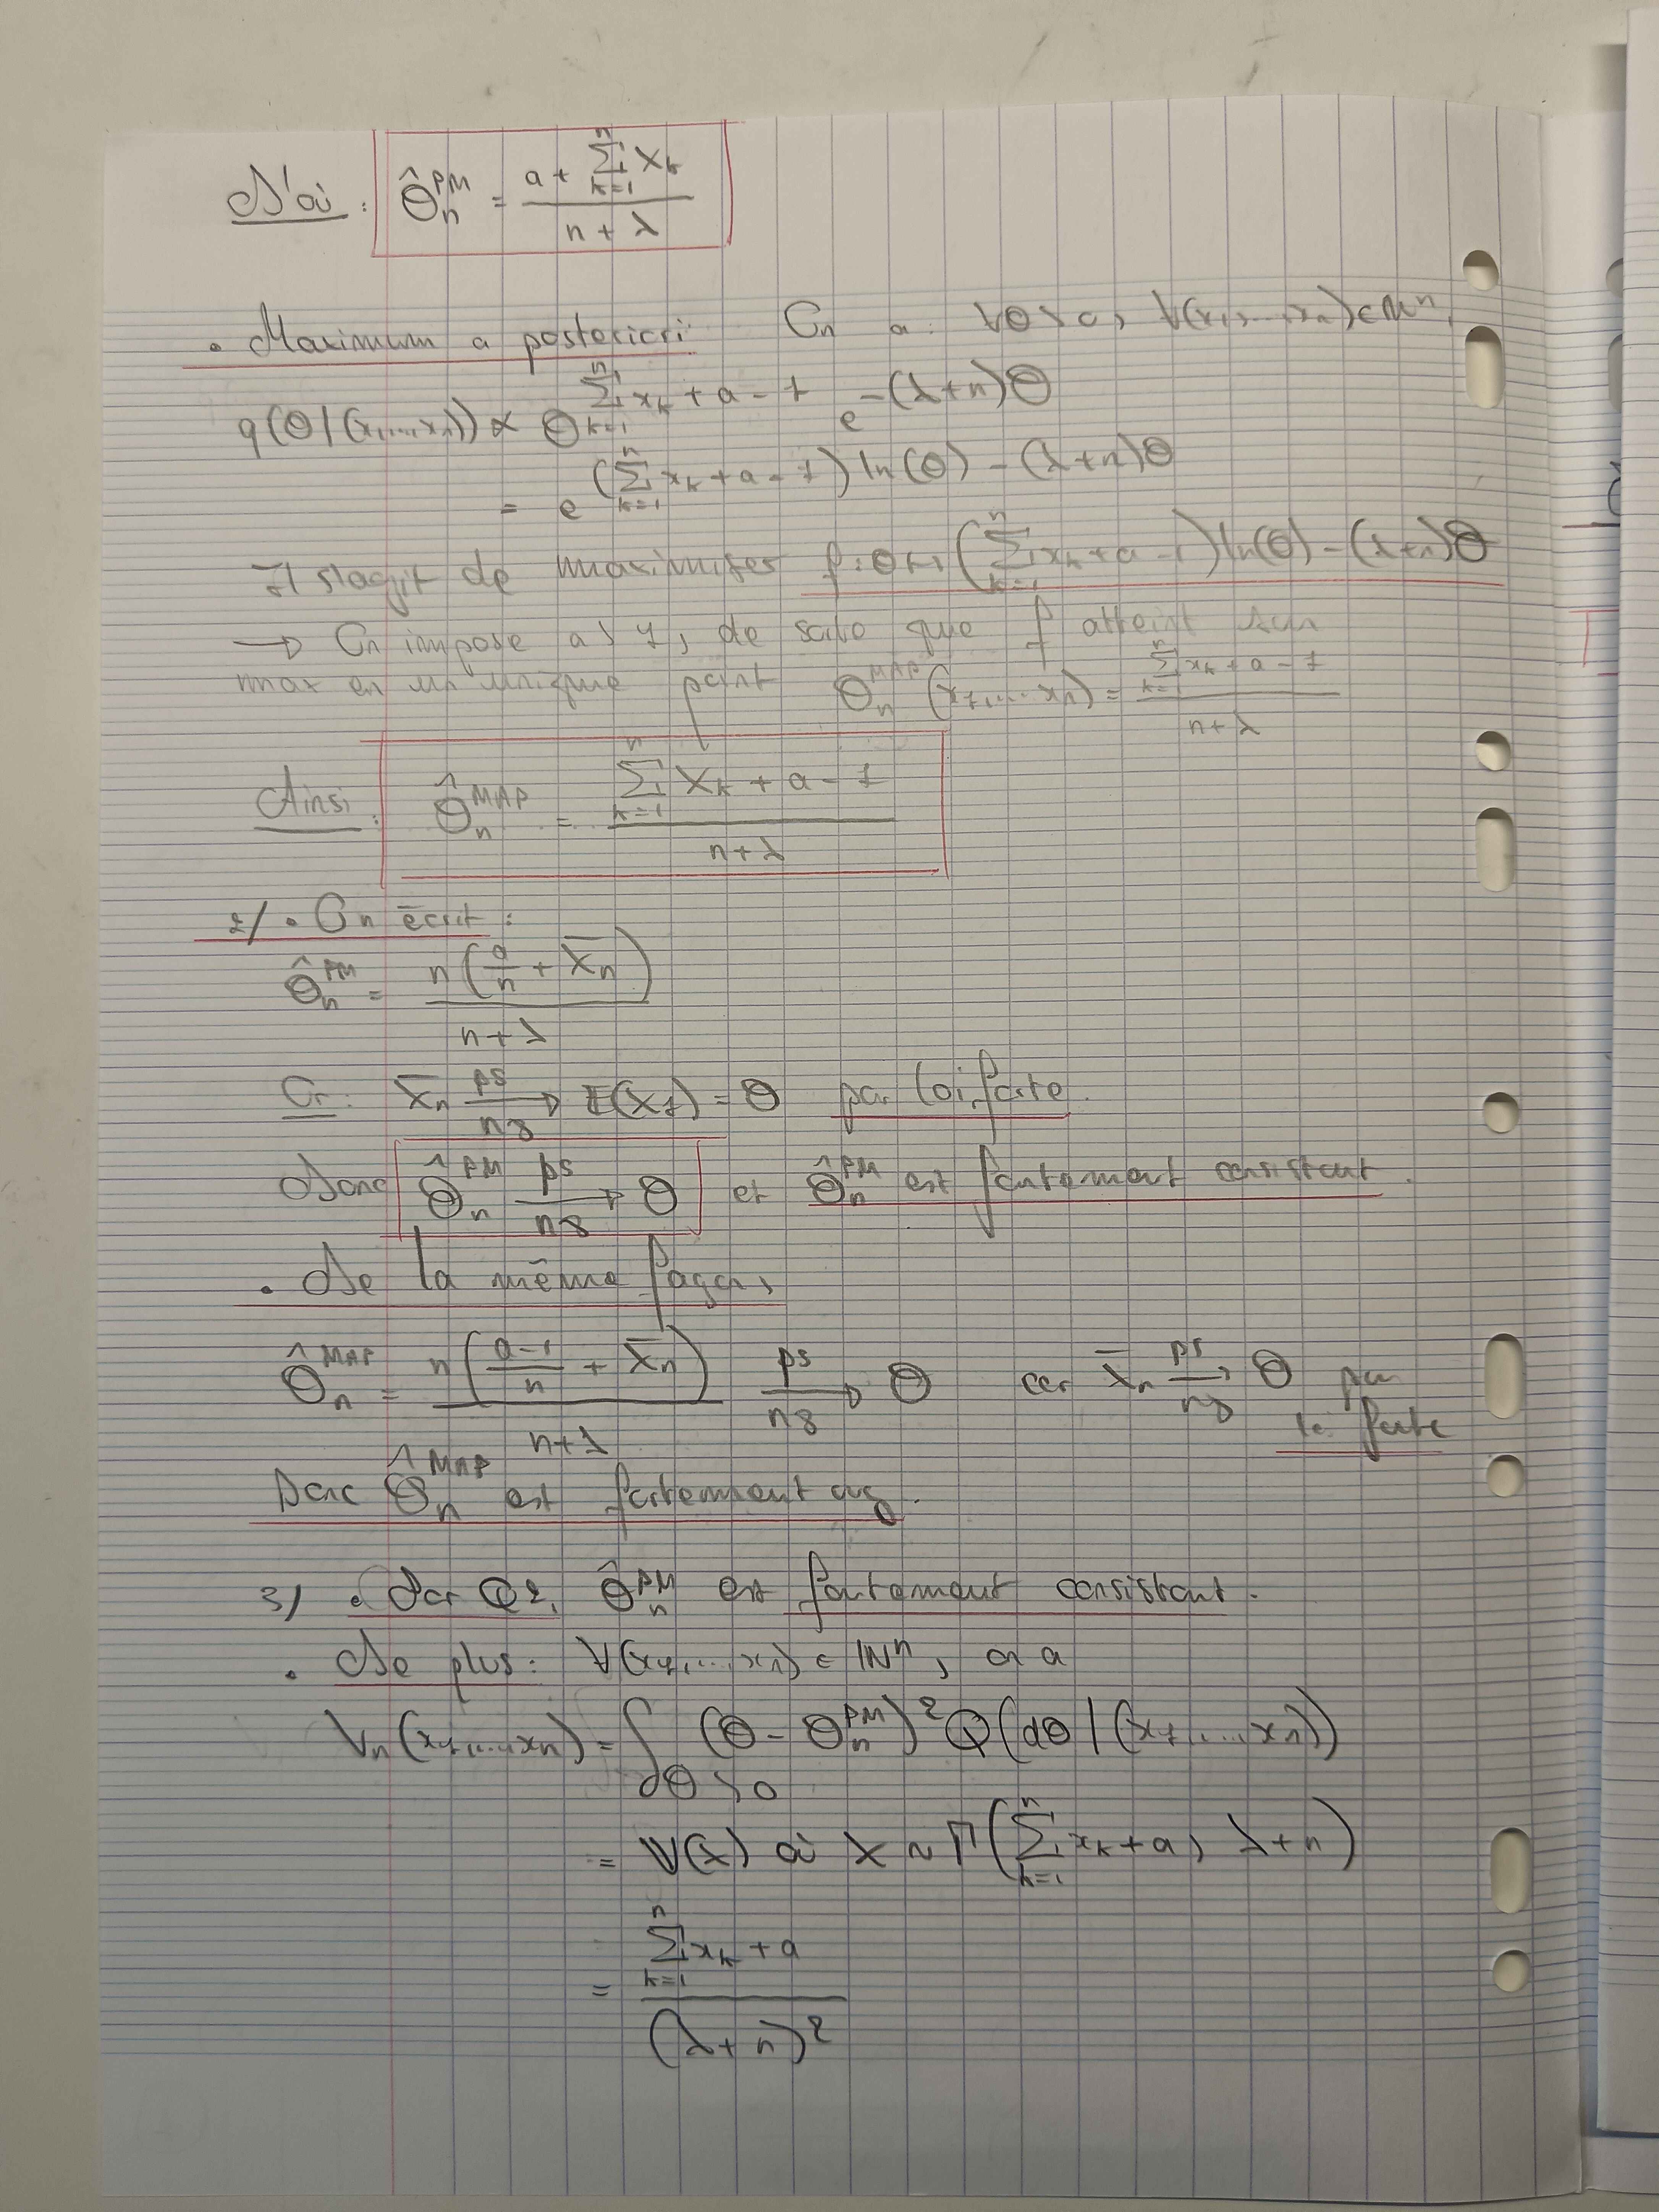 D'où : θ̂_n^PM = (a + Σ_{k=1}^n X_k) / (n + λ)
• Maximum a posteriori : On a : ∀θ > 0, ∀(x_1, ..., x_n) ∈ N^n,
q(θ | (x_1, ..., x_n)) ∝ θ^{Σ_{k=1}^n x_k + a - 1} e^{-(λ+n)θ}
= e^{(Σ_{k=1}^n x_k + a - 1) ln(θ) - (λ+n)θ}
Il s'agit de maximiser f : θ ↦ (Σ_{k=1}^n x_k + a - 1) ln(θ) - (λ+n)θ
→ On impose a > 1, de sorte que f atteint son
max en un unique point θ_n^MAP (x_1, ..., x_n) = (Σ_{k=1}^n x_k + a - 1) / (n + λ)
Ainsi : θ̂_n^MAP = (Σ_{k=1}^n X_k + a - 1) / (n + λ)
2/ • On écrit :
θ̂_n^PM = n(a/n + X̄_n) / (n + λ)
Or : X̄_n →^{ps}_{n∞} E(X_1) = θ par loi forte.
Donc θ̂_n^PM →^{ps}_{n∞} θ et θ̂_n^PM est fortement consistant.
• De la même façon,
θ̂_n^MAP = n((a-1)/n + X̄_n) / (n + λ) →^{ps}_{n∞} θ car X̄_n →^{ps}_{n∞} θ par
loi forte
Donc θ̂_n^MAP est fortement
3) • Par Q2, θ̂_n^PM est fortement consistant.
• De plus : ∀(x_1, ..., x_n) ∈ ℕ^n, on a
V_n(x_1, ..., x_n) = ∫_{θ>0} (θ - θ_n^PM)² Q(dθ | (x_1, ..., x_n))
= V(X) où X ~ Γ(Σ_{k=1}^n x_k + a, λ + n)
= (Σ_{k=1}^n x_k + a) / (λ + n)²